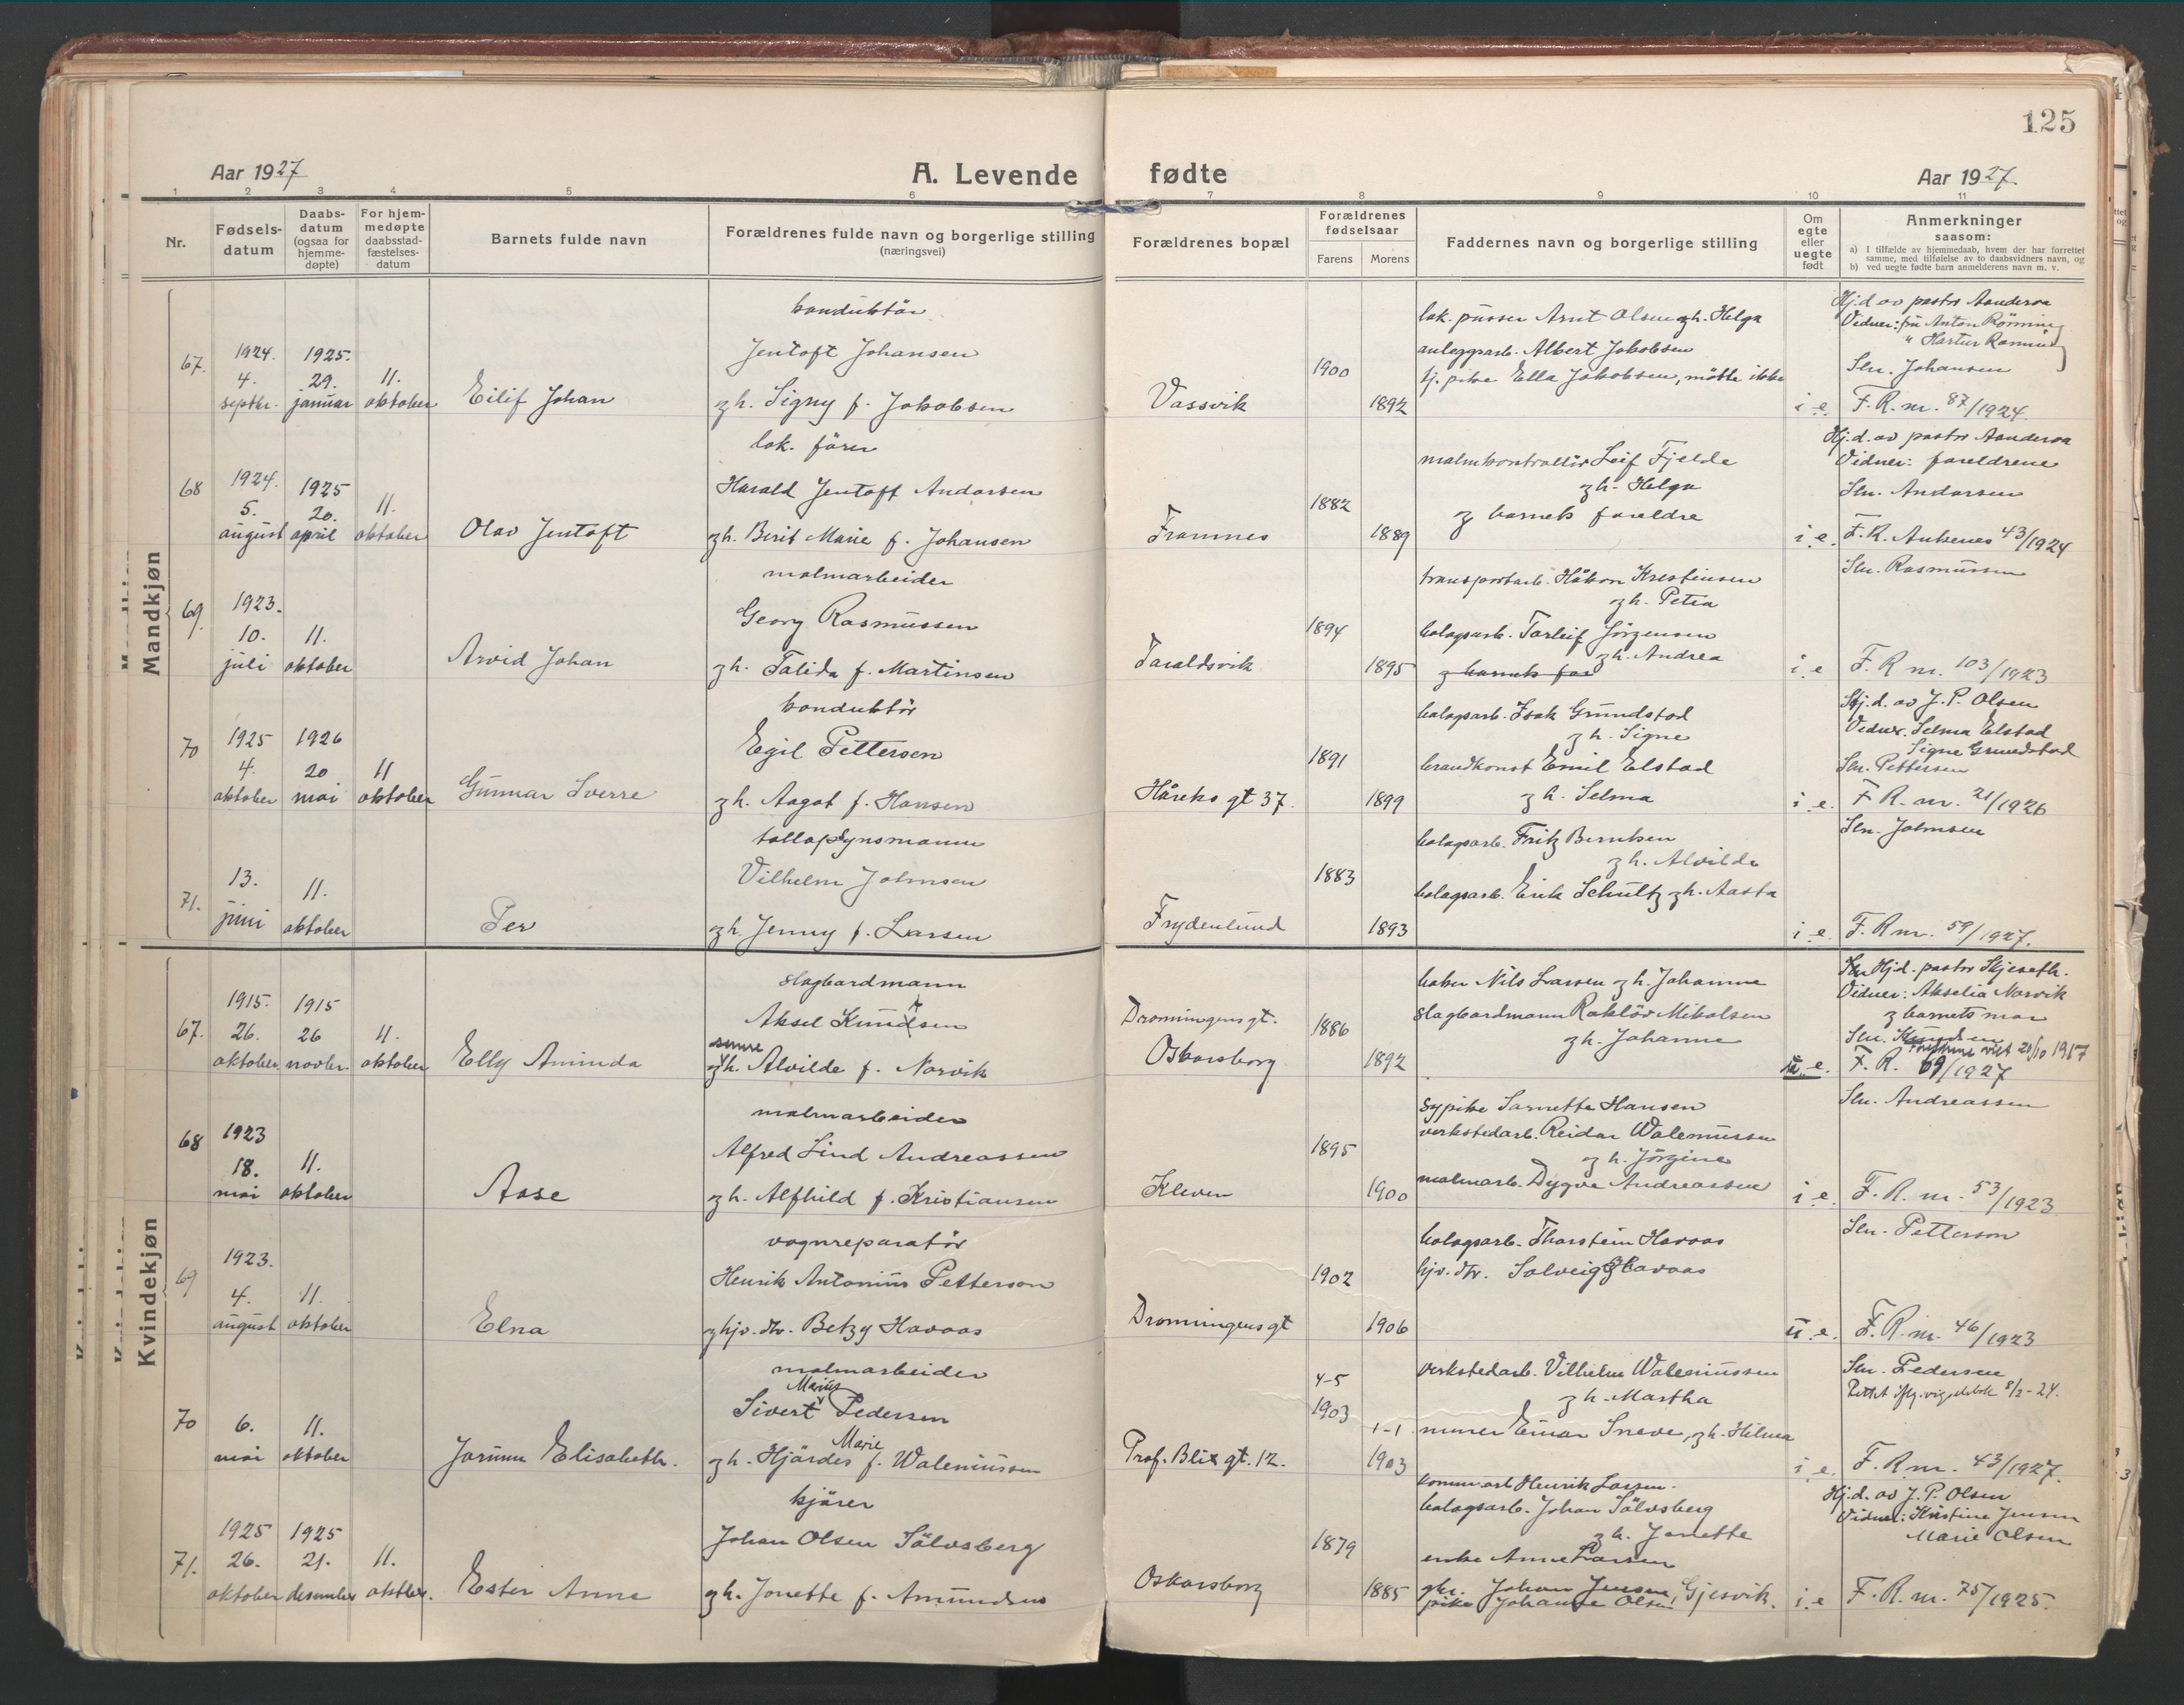 125
Aar 1927
A. Levende fødte
Aar 1927.
1 2 3 4 5 6 7 8 9 10 11
Nr.
Fødsels-
datum
Daabs-
datum
(ogsaa for
hjemme-
døpte)
For hjem-
medøpte
daabsstad-
fæstelses-
datum
Barnets fulde navn
Forældrenes fulde navn og borgerlige stilling
(næringsvei)
Forældrenes bopæl
Forældrenes
fødselsaar
Farens
Morens
Faddernes navn og borgerlige stilling
Om
egte
eller
uegte
født
Anmerkninger
saasom:
a) I tilfælde av hjemmedaab, hvem der har forrettet
samme, med tilføielse av to daabsvidners navn, og
b) ved uegte fødte barn anmelderens navn m. v.
Mandkjøn
67.
1924.
4.
septbr.
1925.
29.
januar
11.
oktober
Eilif Johan
konduktör
Jentoft Johansen
gh. Signy f. Jakobsen
Vassvik
1900
1892
lok. pusser Arnt Olsen gh. Helga
anleggsarb. Albert Jakobsen
tj. pike Ella Jakobsen, mötte ikke
i.e.
Hj.d. av pastor Aanderaa
Vidner: fru Anton Rönning
Sen. Johansen
F. R. nr. 87/1924.
68
1924.
5.
august
1925
20.
april
11.
oktober
Olav Jentoft
lok. förer
Harald Jentoft Andorsen
gh. Berit Marie f. Johansen
Framnes
1882
1889
malmkontrollör Leif Fjelde
gh. Helga
g barnets foreldre
i.e.
Hj.d. av pastor Aanderaa
Vidner: foreldrene
Sen. Andorsen
F. R. Ankenes 43/1924
69.
1923.
10.
juli
11.
oktober
Arvid Johan
malmarbeider
Georg Rasmussen
gh. Talida f. Martinsen
Taraldsvik
1894
1895
transportarb. Håkon Kristensen
gh. Petra
bolagsarb. Torleif Jörgensen
gh. Andrea
g barnets far
i.e
Sen. Rasmussen
F. R nr. 103/1923
70
1925
4.
oktober
1926
20
mai
11
oktober
Gunnar Sverre
konduktör
Egil Pettersen
gh. Aagot f. Hansen
Håreks gt 37.
1891
1899
bolagsarb. Isak Grundstad
gh. Signe
brandkonst Emil Elstad
gh. Selma
i.e.
Hj.d. av J. P. Olsen
Vidner. Selma Elstad
Signe Grundstad
Sen. Pettersen
F R. nr. 21/1926
71.
13.
juni
11.
oktober
Per
tollopsynsmann
Vilhelm Johnsen
gh. Jenny f. Larsen
Frydenlund
1883
1893
bolagsarb. Fritz Berntsen
gh. Alvilde
bolagsarb. Erik Schultz gh. Aasta
i.e.
Sen. Johnsen
F. R nr. 59/1927.
Kvindekjøn
67.
1915.
26.
oktober
1915
26
novbr.
11.
oktober
Elly Aminda
slagbordmann
Aksel Knudsen
senere
gh. Alvilde f. Norvik
Dronningensgt.
Oskarsborg
1886
1892
baker Nils Larsen gh. Johanne
slagbordmann Roklöv Mikalsen
gh. Johanne
u.e.
Hj.d. pastor Skjeseth.
Vidner: Akselia Norvik
g barnets mor
Sen. Knudsen
viet 20/10 1917
F. R. 69/1927
68
1923
18.
mai
11.
oktober
Aase
malmarbeider
Alfred Lind Andreassen
gh. Alfhild f. Kristiansen
Kleven
1895
1900
sypike Sarnette Hansen
verkstedarb. Reidar Waleniussen
gh. Jörgine
malmarb. Dygve Andreassen
i.e.
Sen. Andreassen
F. R. nr. 53/1923.
69
1923.
4.
august
11.
oktober
Elna
vognreparatör
Henrik Antonius Petterson
g hjv. dtr. Betzy Havaas
Dronningensgt
1902
1906
bolagsarb. Thorstein Havaas
hjv. dtr. Solveig Havaas
u.e.
Sen. Petterson
F. R. nr. 46/1923
70
6.
mai
11.
oktober
Jorunn Elisabeth.
malmarbeider
Marius
Sivert Pedersen
Marie
gh. Hjördis f. Waleniussen
Prof. Blix gt. 12.
4-5
1903
1-1
1903
verkstedarb. Vilhelm Waleniussen
gh. Martha
murer Einar Sneve, gh. Hilma
i.e.
Sen. Pedersen
8/2-24.
F. R. nr. 43/1927.
71.
1925
26.
oktober
1925
21.
desember
11.
oktbr.
Ester Anna
kjörer
Johan Olsen Sölvsberg
gh. Jonette f. Amundsen
Oskarsborg
1879
1885
komm. arb Henrik Larsen.
bolagsarb. Johan Sölvsberg
gh. Jonette
enke Anne Larsen
gbr. Johan Jensen, Gjesvik.
pike Johanne Olsen
i.e
Hj.d. av J. P. Olsen
Vidner: Kristine Jensen
Marie Olsen
F. R. nr. 75/1925.